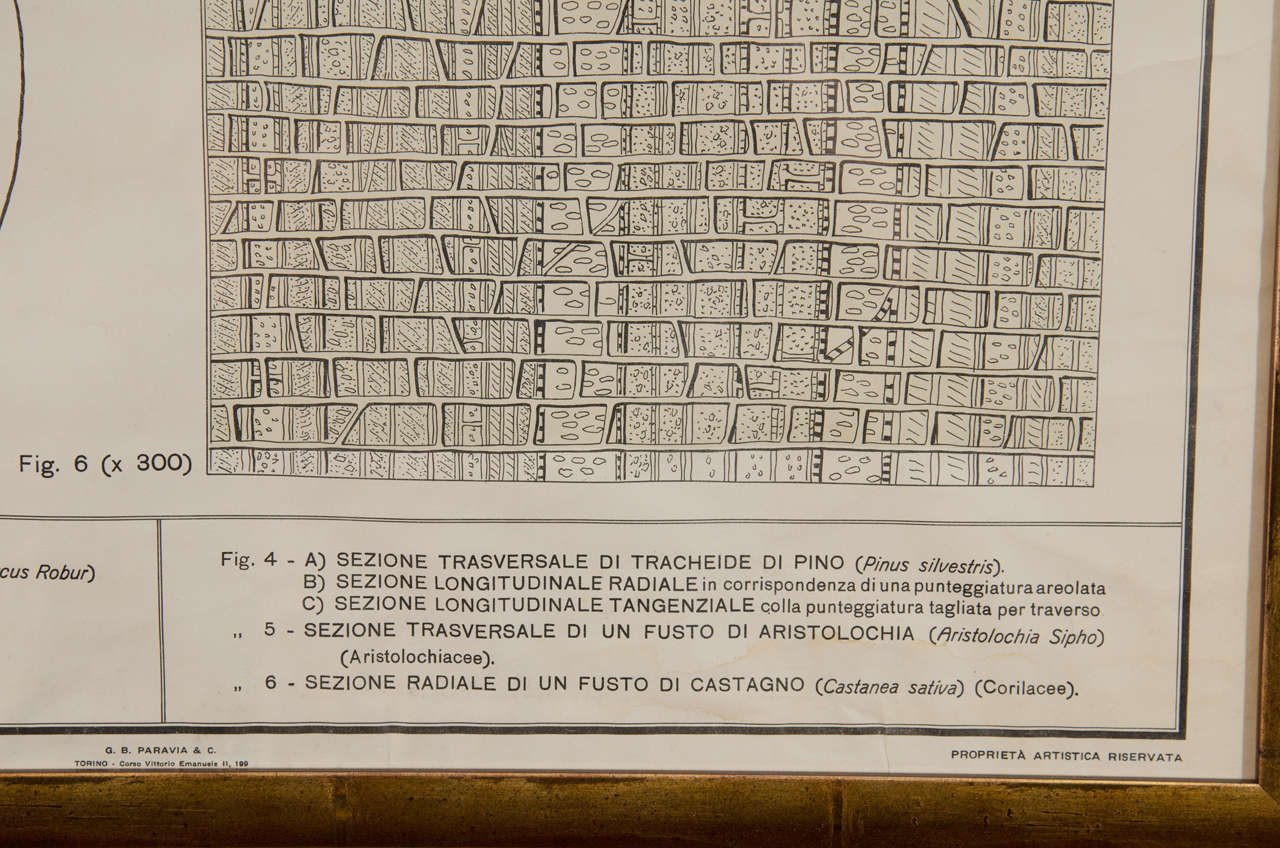 Fig. 6 (x 300)
cus Robur)
Fig. 4 - A) SEZIONE TRASVERSALE DI TRACHEIDE DI PINO (Pinus silvestris).
B) SEZIONE LONGITUDINALE RADIALE in corrispondenza di una punteggiatura areolata
C) SEZIONE LONGITUDINALE TANGENZIALE colla punteggiatura tagliata per traverso
„ 5 - SEZIONE TRASVERSALE DI UN FUSTO DI ARISTOLOCHIA (Aristolochia Sipho)
(Aristolochiacee).
„ 6 - SEZIONE RADIALE DI UN FUSTO DI CASTAGNO (Castanea sativa) (Corilacee).
G. B. PARAVIA & C.
TORINO - Corso Vittorio Emanuele II, 199
PROPRIETÀ ARTISTICA RISERVATA